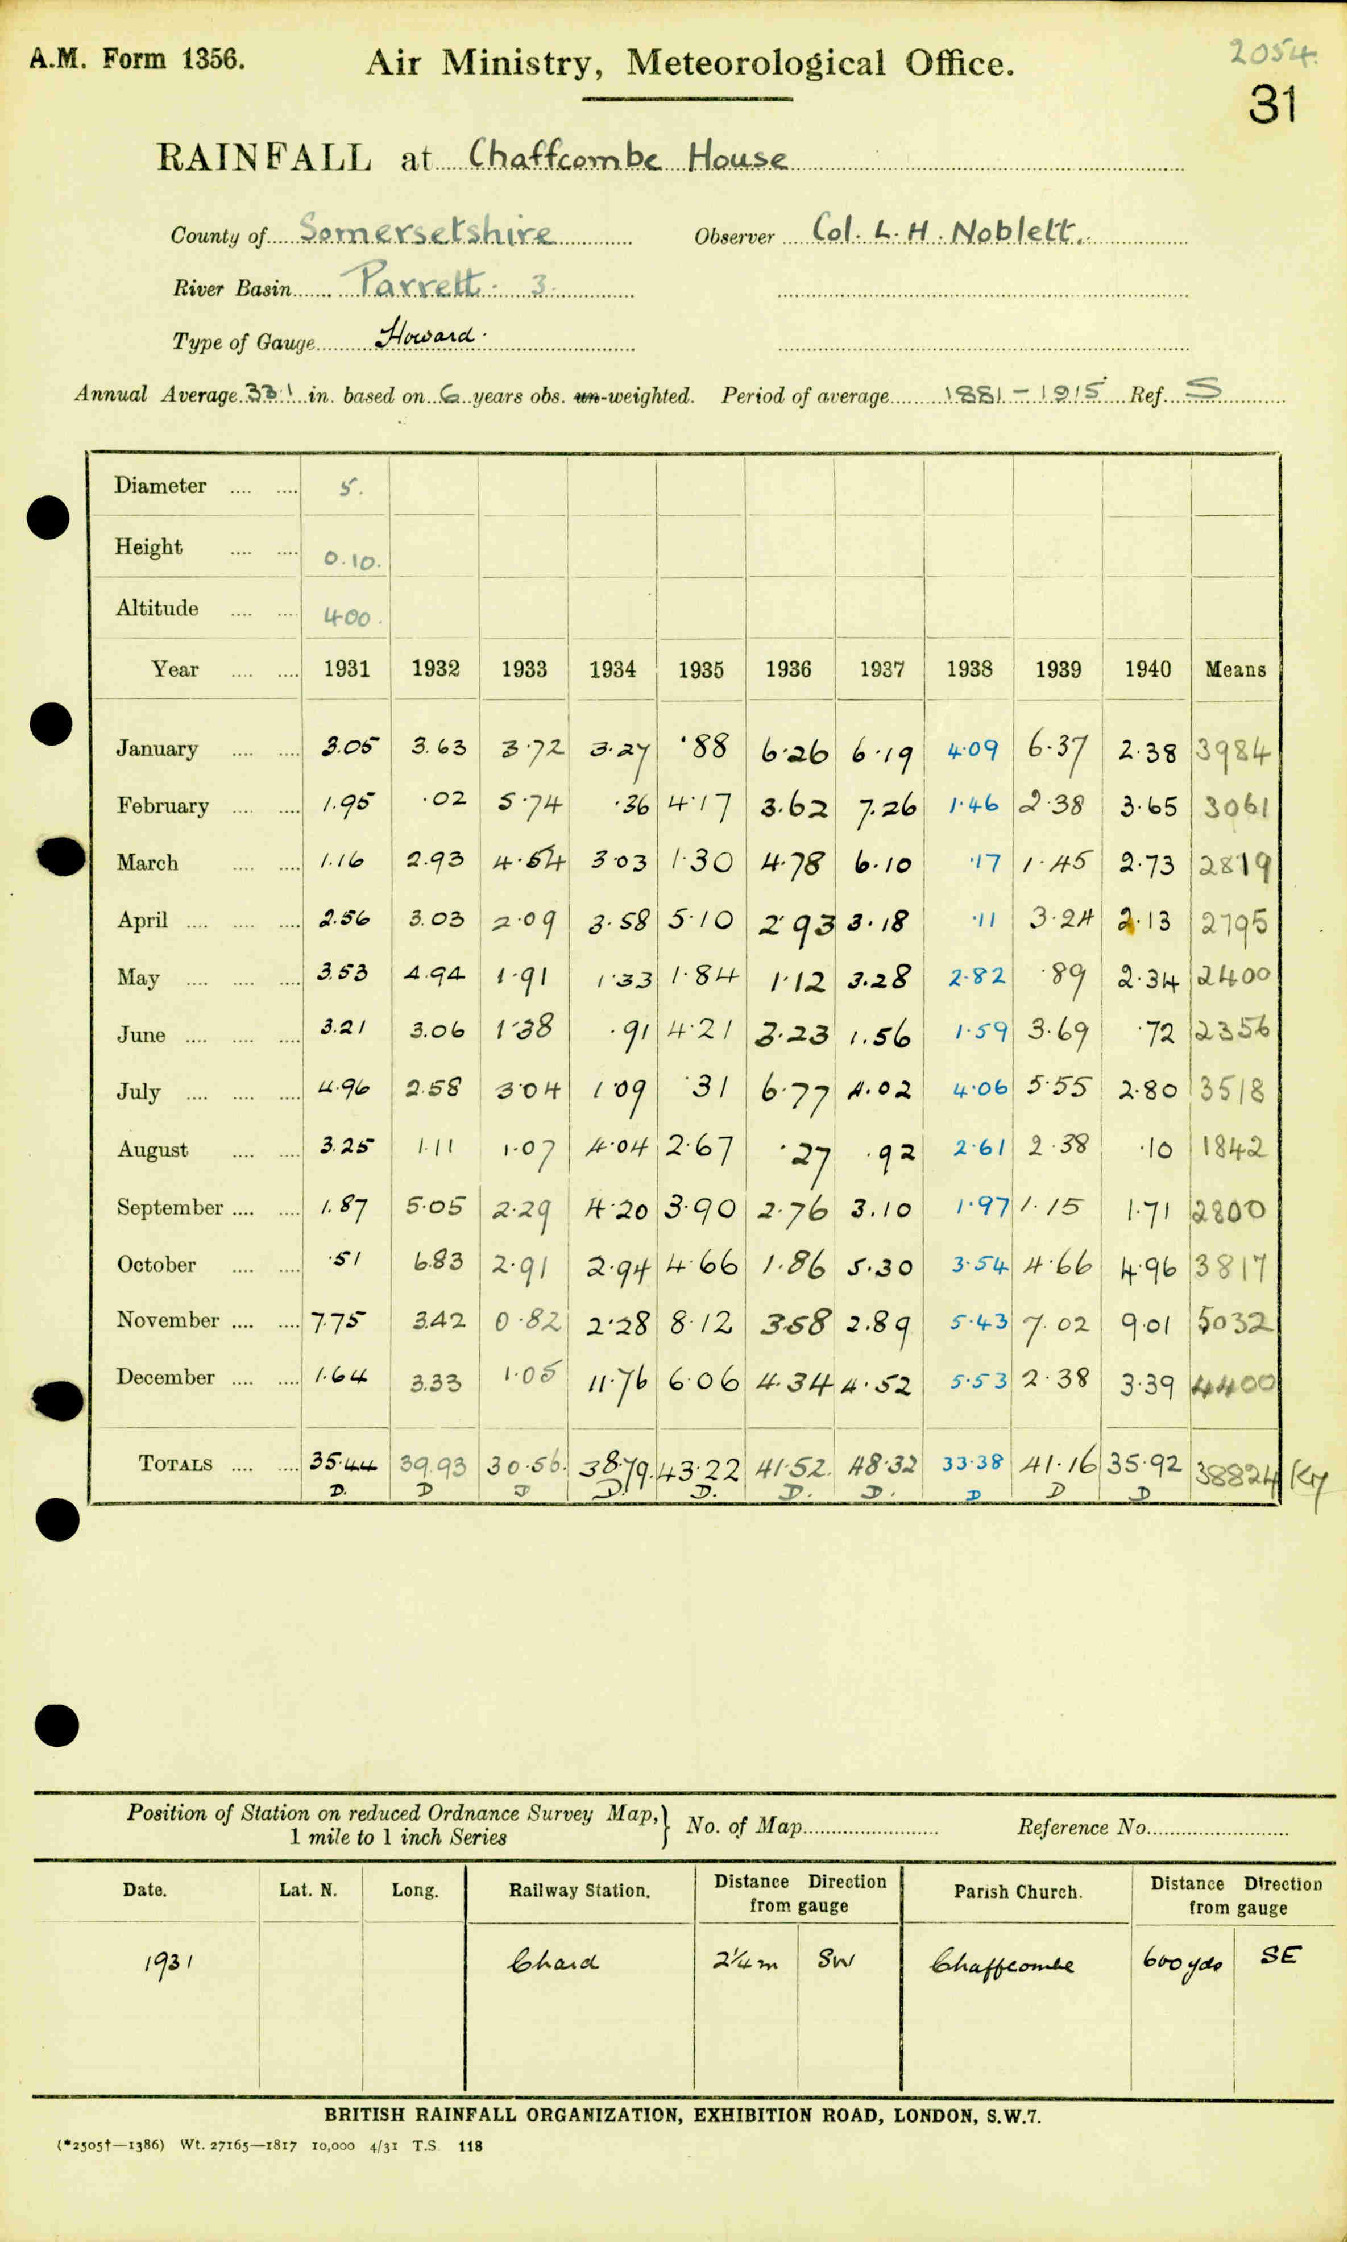 A.M. Form 1356.
Air Ministry, Meteorological Office.
2054.
31
RAINFALL at Chaffcombe House
County of Somersetshire Observer Col. L. H. Noblett.
River Basin Parrett. 3.
Type of Gauge Howard.
Annual Average 33.1 in. based on 6 years obs. un-weighted. Period of average 1881-1915 Ref. S
Diameter .... .... 5.
Height .... .... 0.10.
Altitude .... .... 400.
Year .... .... 1931 1932 1933 1934 1935 1936 1937 1938 1939 1940 Means
January .... .... 3.05 3.63 3.72 3.27 .88 6.26 6.19 4.09 6.37 2.38 3984
February .... .... 1.95 .02 5.74 .36 4.17 3.62 7.26 1.46 2.38 3.65 3061
March .... .... 1.16 2.93 4.54 3.03 1.30 4.78 6.10 .17 1.45 2.73 2819
April .... .... .... 2.56 3.03 2.09 3.58 5.10 2.93 3.18 .11 3.24 2.13 2795
May .... .... .... 3.53 4.94 1.91 1.33 1.84 1.12 3.28 2.82 .89 2.34 2400
June .... .... .... 3.21 3.06 1.38 .91 4.21 3.23 1.56 1.59 3.69 .72 2356
July .... .... .... 4.96 2.58 3.04 1.09 .31 6.77 4.02 4.06 5.55 2.80 3518
August .... .... 3.25 1.11 1.07 4.04 2.67 .27 .92 2.61 2.38 .10 1842
September .... .... 1.87 5.05 2.29 4.20 3.90 2.76 3.10 1.97 1.15 1.71 2800
October .... .... .51 6.83 2.91 2.94 4.66 1.86 5.30 3.54 4.66 4.96 3817
November .... .... 7.75 3.42 0.82 2.28 8.12 3.58 2.89 5.43 7.02 9.01 5032
December .... .... 1.64 3.33 1.05 11.76 6.06 4.34 4.52 5.53 2.38 3.39 4400
TOTALS .... .... 35.44 39.93 30.56. 38.79. 43.22 41.52. 48.32 33.38 41.16 35.92 38824
D. D D D. D. D. D. D D D
Position of Station on reduced Ordnance Survey Map,} No. of Map Reference No.
1 mile to 1 inch Series
Date. Lat. N. Long. Railway Station. Distance Direction from gauge Parish Church. Distance Direction from gauge
1931 Chard 2¼m SW Chaffcombe 600 yds SE
BRITISH RAINFALL ORGANIZATION, EXHIBITION ROAD, LONDON, S.W.7.
(*2505†—1386) Wt. 27165—1817 10,000 4/31 T.S. 118